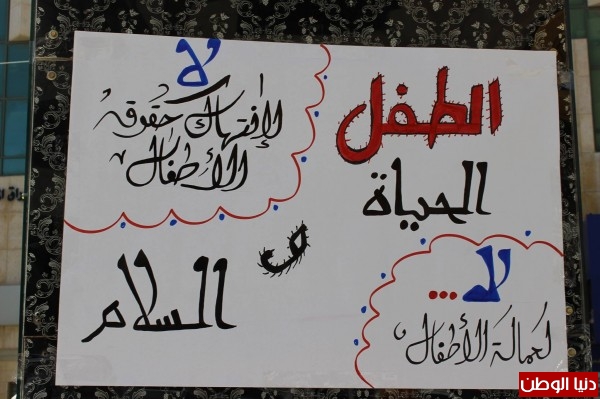 الطفل
الحياة
و
السلام
لا
لإنتهاك حقوق
الأطفال
لا...
لعمالة الأطفال
دنيا الوطن